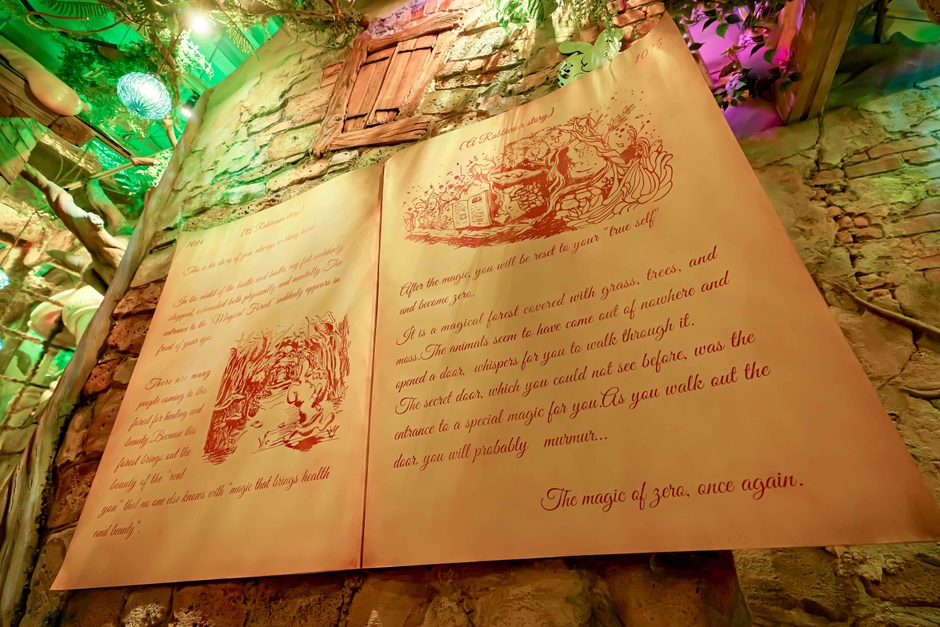 1014
(A Rabbius's story)
This is the story of you, always working hard.
In the midst of the hustle and bustle, my feet suddenly
stopped, exhausted both physically and mentally. The
entrance to the "Magical Forest" suddenly appears in
front of your eyes.
There are many
people coming to this
forest for healing and
beauty.Because this
forest brings out the
beauty of the "real
you" that no one else knows with "magic that brings health
and beauty".
(A Rabbius's story)
After the magic, you will be reset to your "true self"
and become zero.
It is a magical forest covered with grass, trees, and
moss.The animals seem to have come out of nowhere and
opened a door, whispers for you to walk through it.
The secret door, which you could not see before, was the
entrance to a special magic for you.As you walk out the
door, you will probably murmur...
The magic of zero, once again.